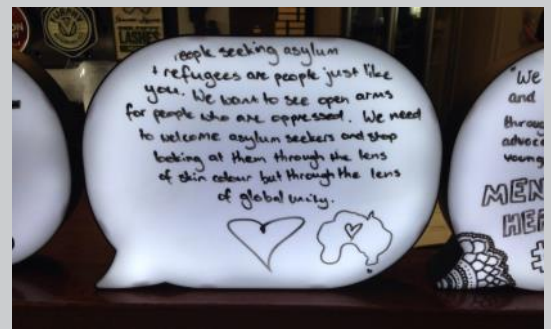 People seeking asylum
+ refugees are people just like
you. We want to see open arms
for people who are oppressed. We need
to welcome asylum seekers and stop
looking at them through the lens
of skin colour but through the lens
of global unity.
"We
and
through
advoca
young
MEN
HER
#